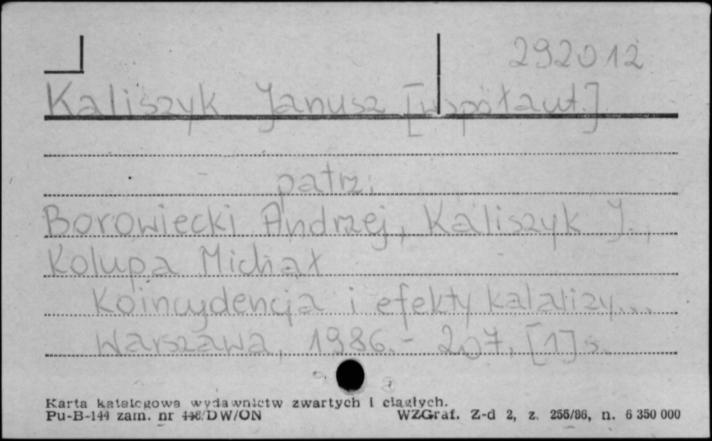 292012
Kaliszyk Janusz [współaut.]
patrz:
Borowiecki Andrzej, Kaliszyk J.,
Kolupa Michał
Koincydencja i efekty katalizy...
Warszawa, 1986.- 207, [1] s.
Karta katalogowa wydawnictw zwartych i ciągłych.
Pu-B-144 zam. nr 446/DW/ON WZGraf. Z-d 2, z. 255/86, n. 6 350 000